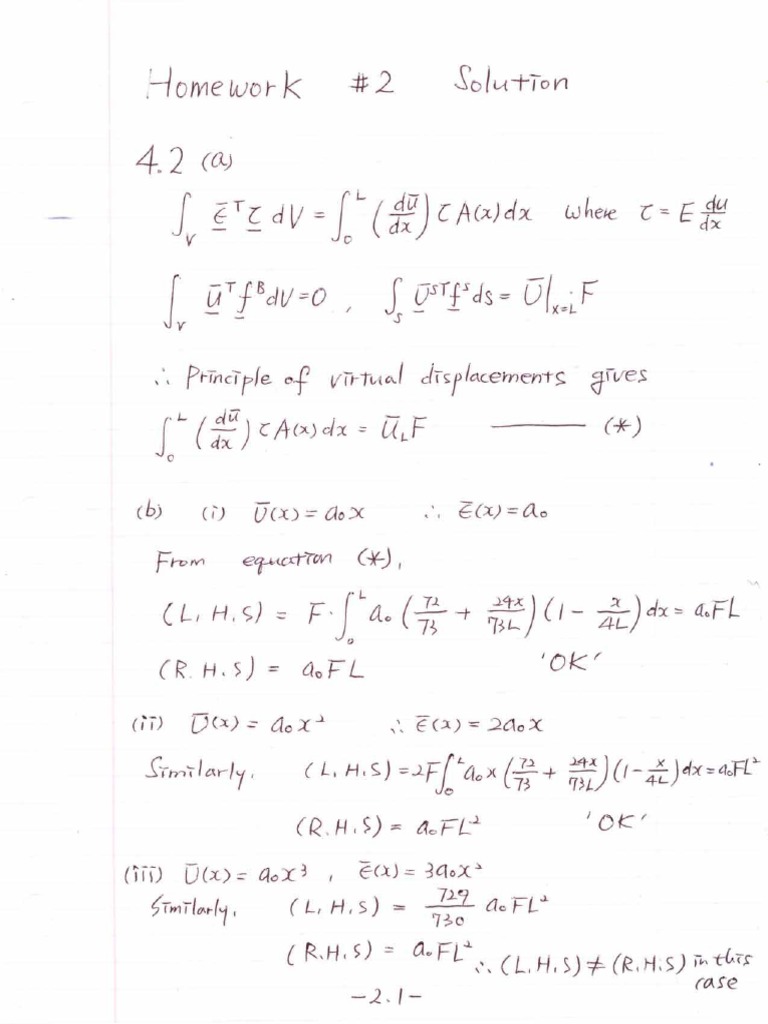 Homework #2 Solution
4.2 (a)
∫_V ε̄ᵀ τ dV = ∫₀ᴸ (dū/dx) τ A(x) dx where τ = E du/dx
∫_V ūᵀ fᴮ dV = 0 , ∫_S Ūˢᵀ fˢ ds = Ū|ₓ₌L F
∴ Principle of virtual displacements gives
∫₀ᴸ (dū/dx) τ A(x) dx = ū_L F ——— (*)
(b) (i) Ū(x) = a₀x ∴ ε̄(x) = a₀
From equation (*),
(L.H.S) = F·∫₀ᴸ a₀ (72/73 + 24x/73L) (1 − x/4L) dx = a₀FL
(R.H.S) = a₀FL 'OK'
(ii) Ū(x) = a₀x² ∴ ε̄(x) = 2a₀x
Similarly, (L.H.S) = 2F∫₀ᴸ a₀x (72/73 + 24x/73L) (1 − x/4L) dx = a₀FL²
(R.H.S) = a₀FL² 'OK'
(iii) Ū(x) = a₀x³ , ε̄(x) = 3a₀x²
Similarly, (L.H.S) = 729/730 a₀FL²
(R.H.S) = a₀FL² ∴ (L.H.S) ≠ (R.H.S) in this case
-2.1-